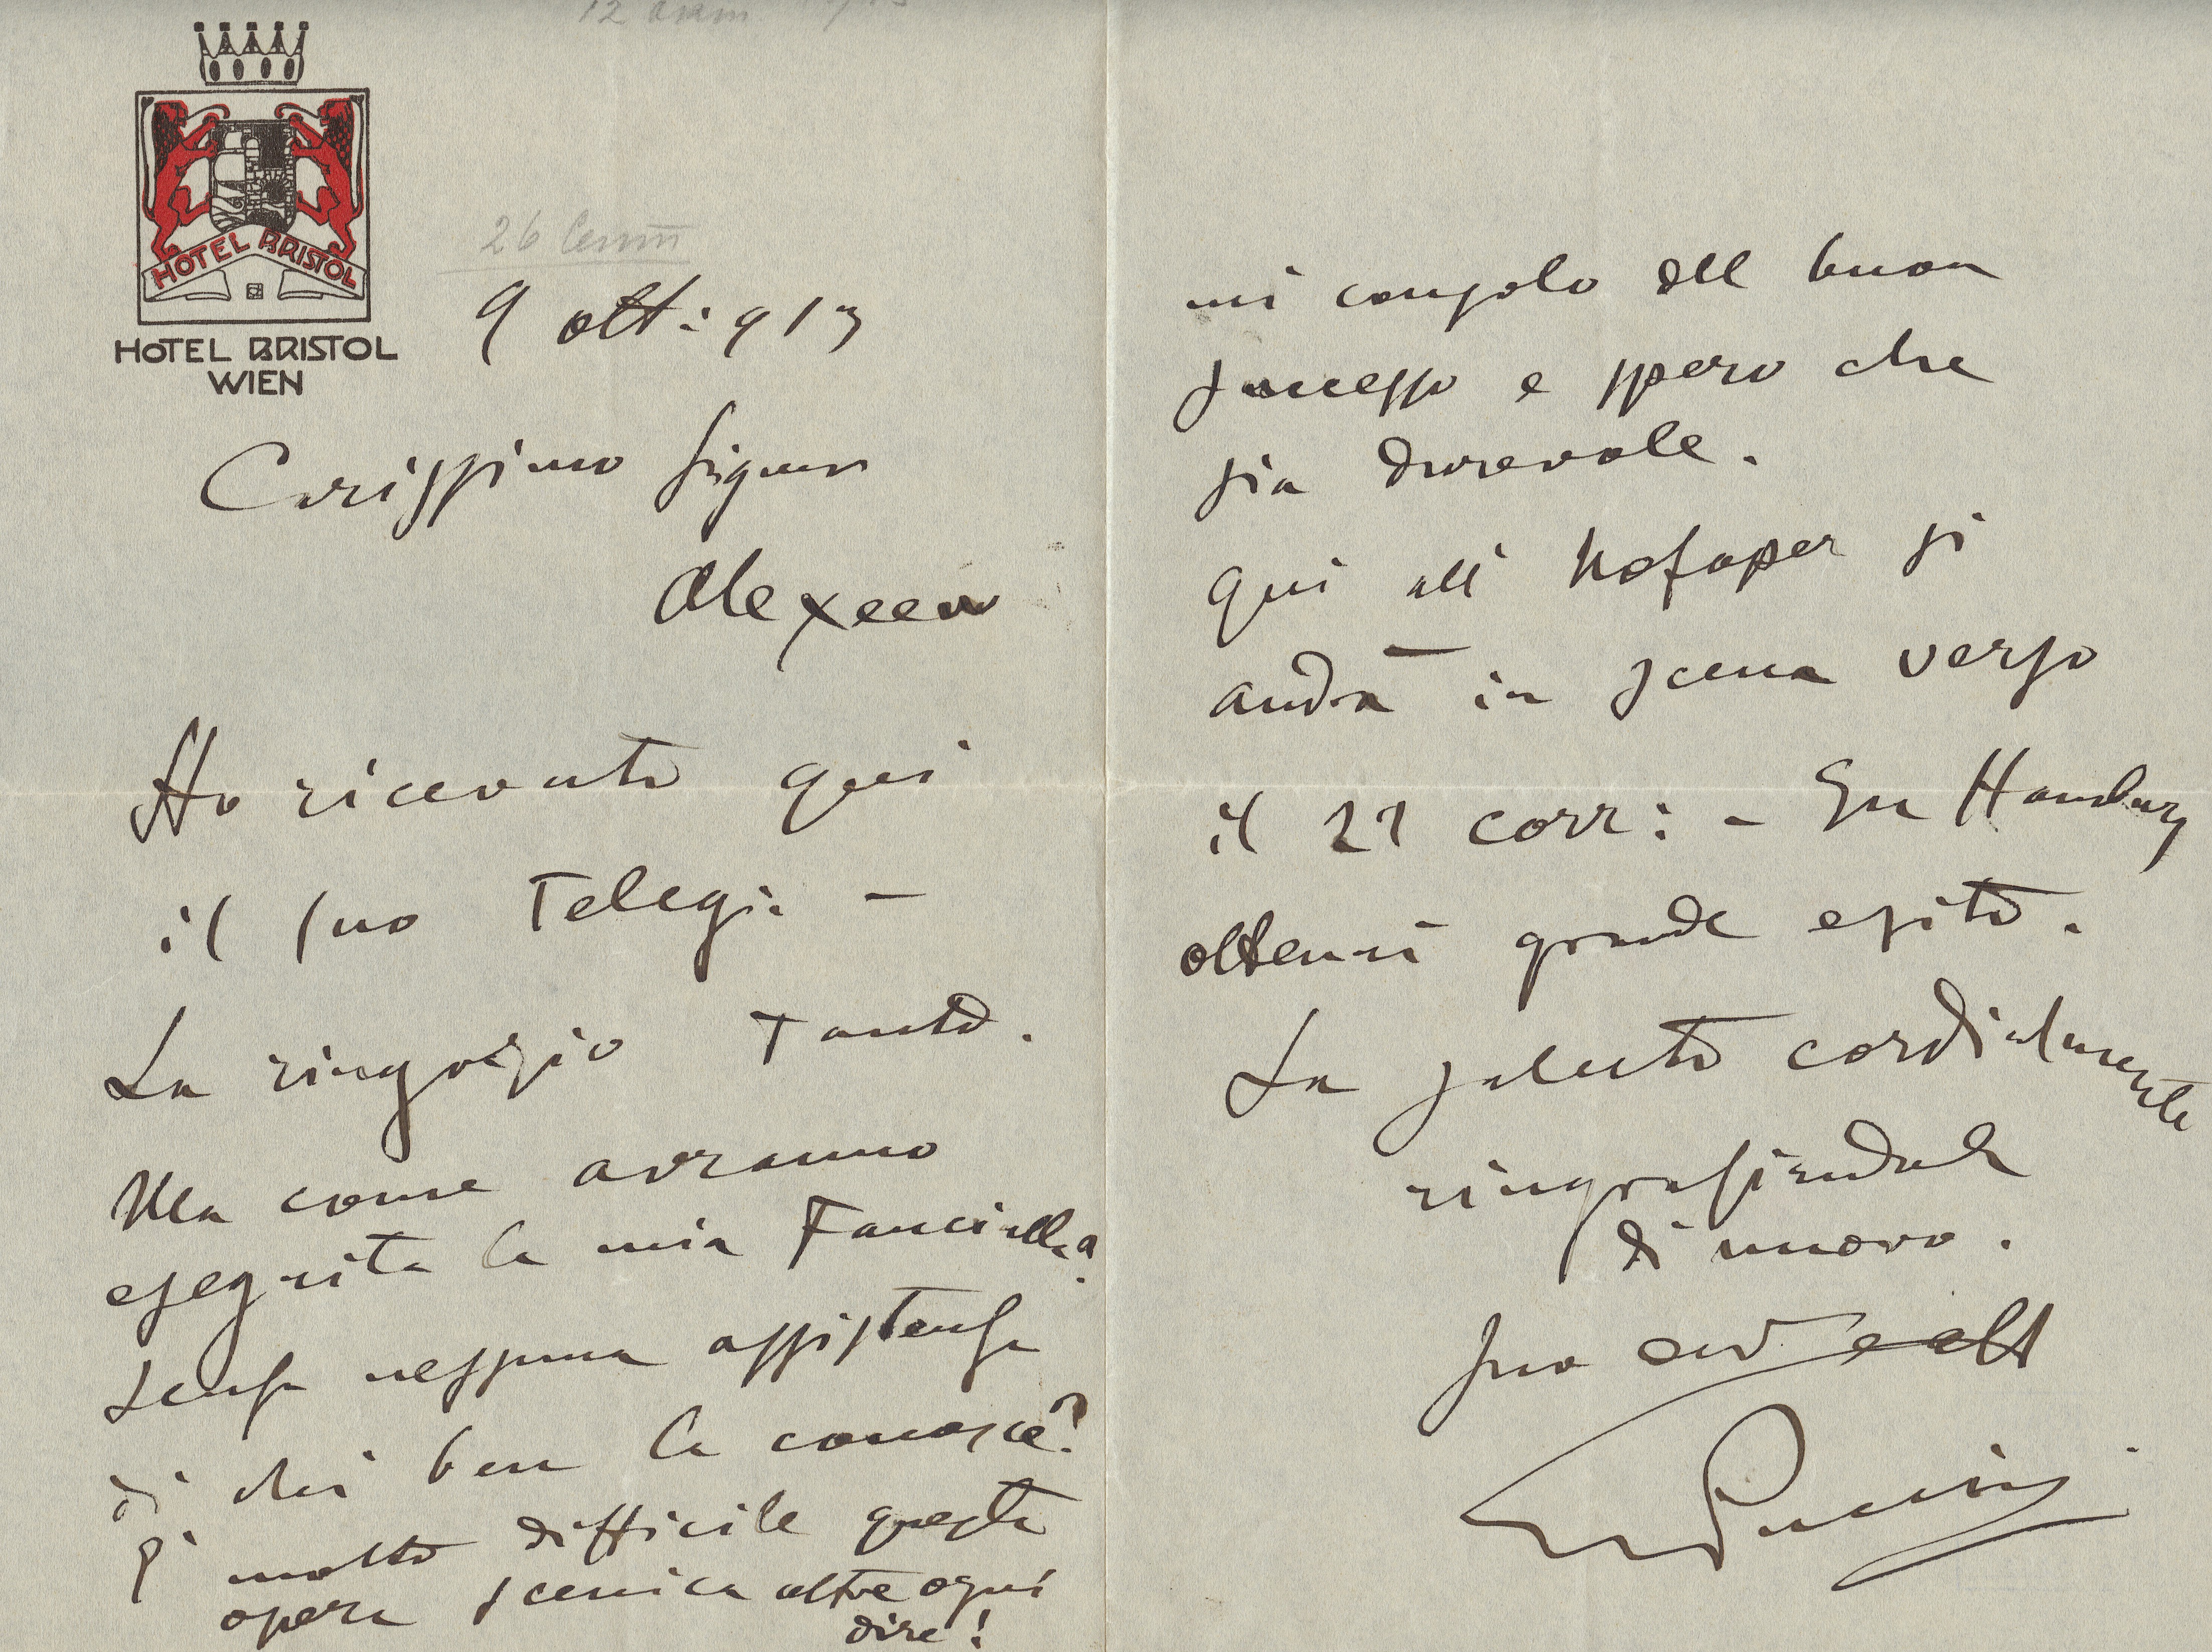 HOTEL BRISTOL
HOTEL BRISTOL
WIEN
9 ott: 913
Carissimo Signor
Alexeew
Ho ricevuto qui
il suo Telegr: –
La ringrazio Tanto.
Ma come avranno
eseguita la mia Fanciulla
senza nessuna assistenza
di chi ben la conosce?
È molto difficile questa
opera scenica oltre ogni
dire!
mi consolo del buon
successo e spero che
sia durevole.
Qui all' Hofoper si
andrà in scena verso
il 21 corr: – In Hamburg
ottenni grande esito.
La saluto cordialmente
ringraziandola
di nuovo.
Suo
GPuccini